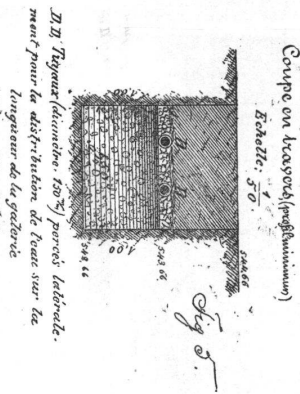 Coupe en travers (profil minimum)
Echelle: 1/50.
544,66
Fig 5.
D D
543,66
1,00
542,66
D, D, Tuyaux (diamètre 150 m/m) percés latérale-
ment pour la distribution de l'eau sur la
longueur de la galerie